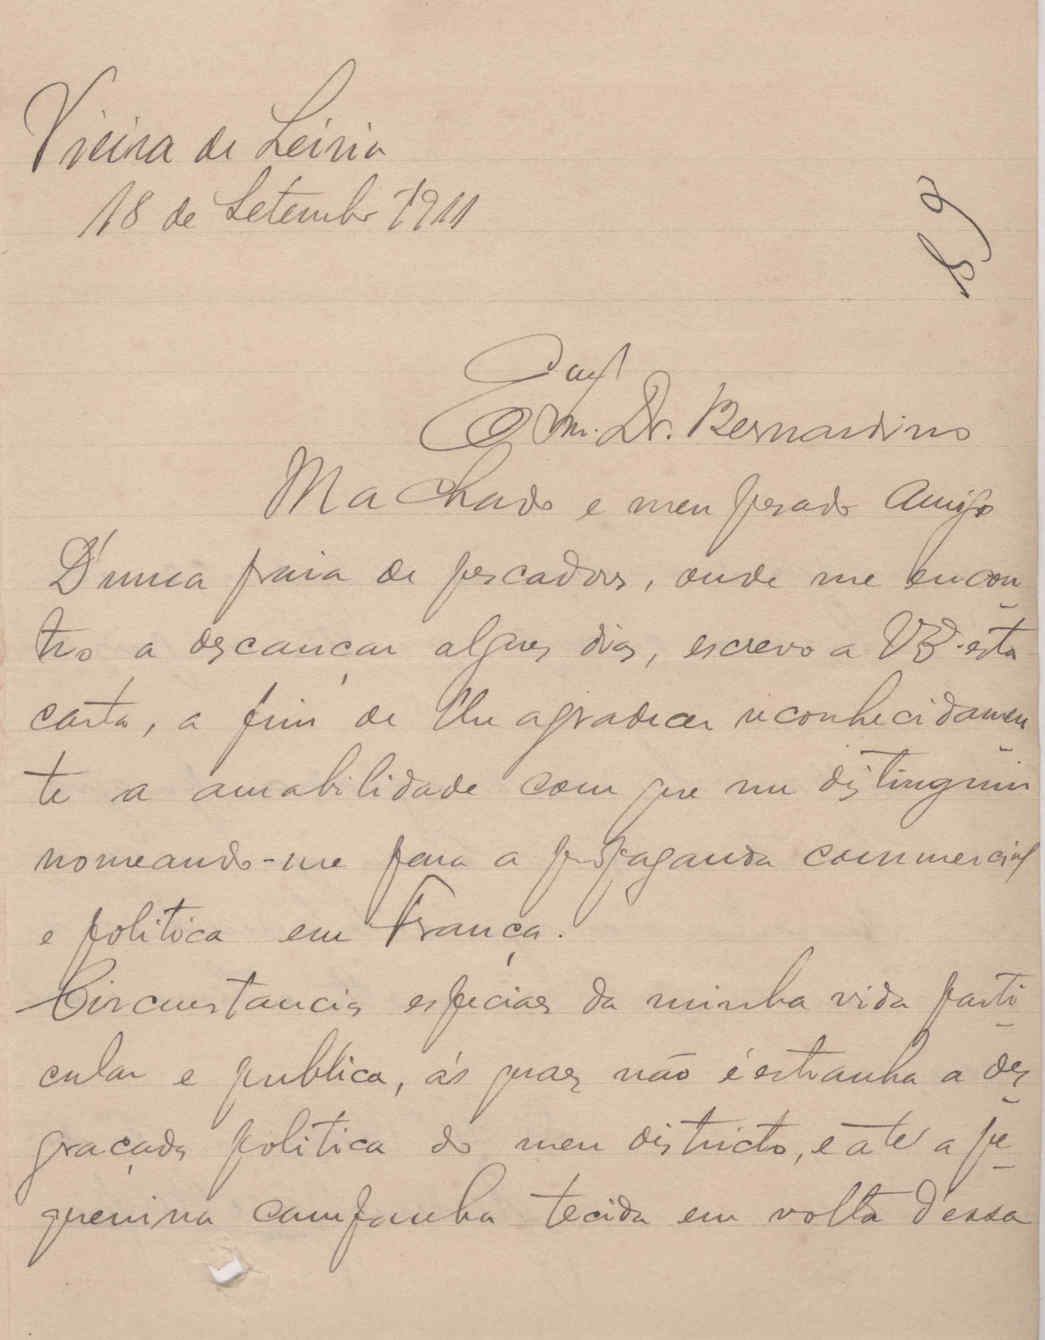 Vieira de Leiria
18 de Setembro 1911
69
Exmº Dr. Bernardino
Machado e meu presado Amigo
D'uma praia de pescadores, onde me encon-
tro a descançar alguns dias, escrevo a V. Exª esta
carta, a fim de lhe agradecer reconhecidamen-
te a amabilidade com que me distinguiu
nomeando-me para a propaganda commercial
e politica em França.
Circumstancias especiaes da minha vida parti-
cular e publica, ás quaes não é estranha a des-
graçada politica do meu districto, e até a pe-
quenina campanha tecida em volta d'essa